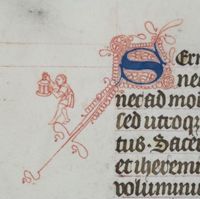 Ser
ne
nec ad moi
sed utroqu
tus. Sacer
et iherem
voluminu